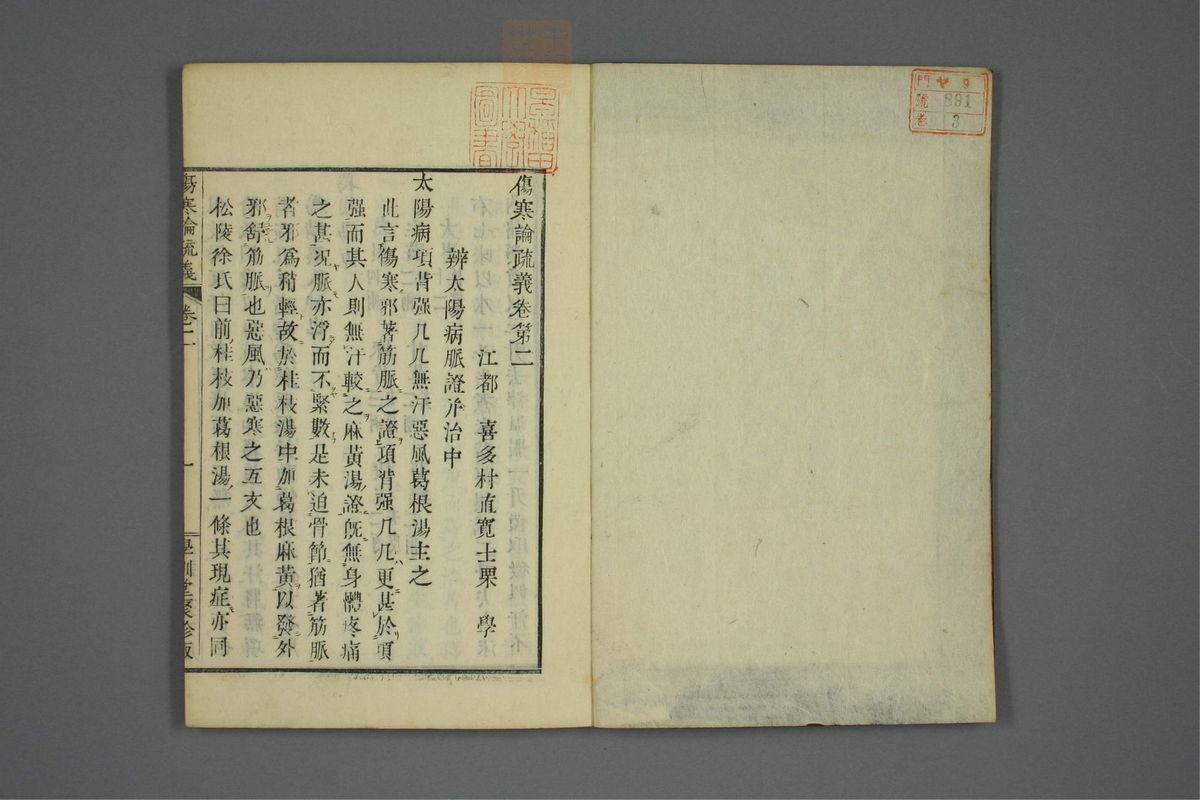 門 9
號 891
卷 3
早稲田
大學
圖書
傷寒論疏義卷第二
江都 喜多村直寬士栗 學
辨太陽病脈證并治中
太陽病項背强几几無汗惡風葛根湯主之
此言傷寒邪著筋脈之證項背强几几更甚於項
强而其人則無汗較之麻黃湯證既無身體疼痛
之甚况脈亦浮而不緊數是未迫骨節猶著筋脈
者邪爲稍輕故於桂枝湯中加葛根麻黃以發外
邪舒筋脈也惡風乃惡寒之互文也
松陵徐氏曰前桂枝加葛根湯一條其現症亦同
傷寒論疏義 卷二 一 學訓堂聚珍版